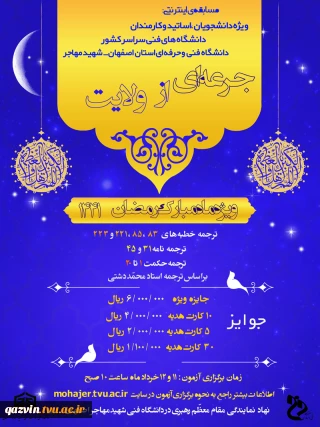 مسابقه‌ی اینترنتی:
ویژه دانشجویان، اساتید و کارمندان
دانشگاه‌های فنی سراسر کشور
دانشگاه فنی و حرفه‌ای استان اصفهان - شهید مهاجر
جرعه‌ای از ولایت
ویژه ماه مبارک رمضان ۱۴۴۱
ترجمه خطبه‌های ۸۳، ۸۵، ۲۲۱ و ۲۲۳
ترجمه نامه ۳۱ و ۴۵
ترجمه حکمت ۱ تا ۲۰
براساس ترجمه استاد محمد دشتی
جوایز
جایزه ویژه ۶/۰۰۰/۰۰۰ ریال
۱۰ کارت هدیه ۴/۰۰۰/۰۰۰ ریال
۵ کارت هدیه ۲/۰۰۰/۰۰۰ ریال
۳۰ کارت هدیه ۱/۱۰۰/۰۰۰ ریال
زمان برگزاری آزمون: ۱۱ و ۱۲ خرداد ماه ساعت ۱۰ صبح
اطلاعات بیشتر راجع به نحوه برگزاری آزمون در سایت mohajer.tvu.ac.ir
نهاد نمایندگی مقام معظم رهبری در دانشگاه فنی شهید مهاجر
qazvin.tvu.ac.ir